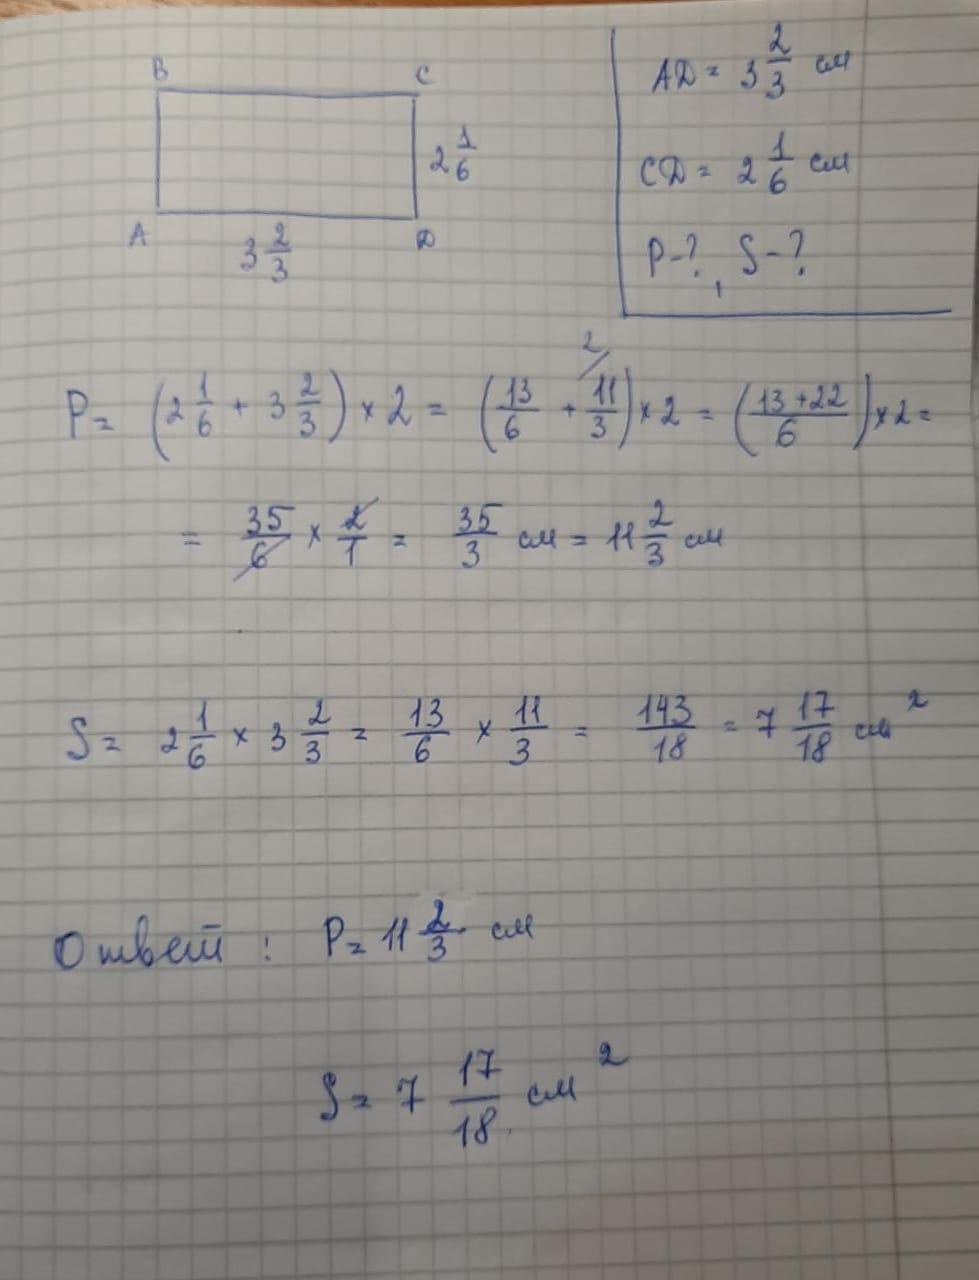 B C
2 1/6
A D
3 2/3
AD = 3 2/3 см
CD = 2 1/6 см
P-?, S-?
P = (2 1/6 + 3 2/3) × 2 = (13/6 + 11/3 2/) × 2 = (13+22/6) × 2 =
= 35/6 × 2/1 = 35/3 см = 11 2/3 см
S = 2 1/6 × 3 2/3 = 13/6 × 11/3 = 143/18 = 7 17/18 см²
Ответ : P = 11 2/3 см
S = 7 17/18 см²